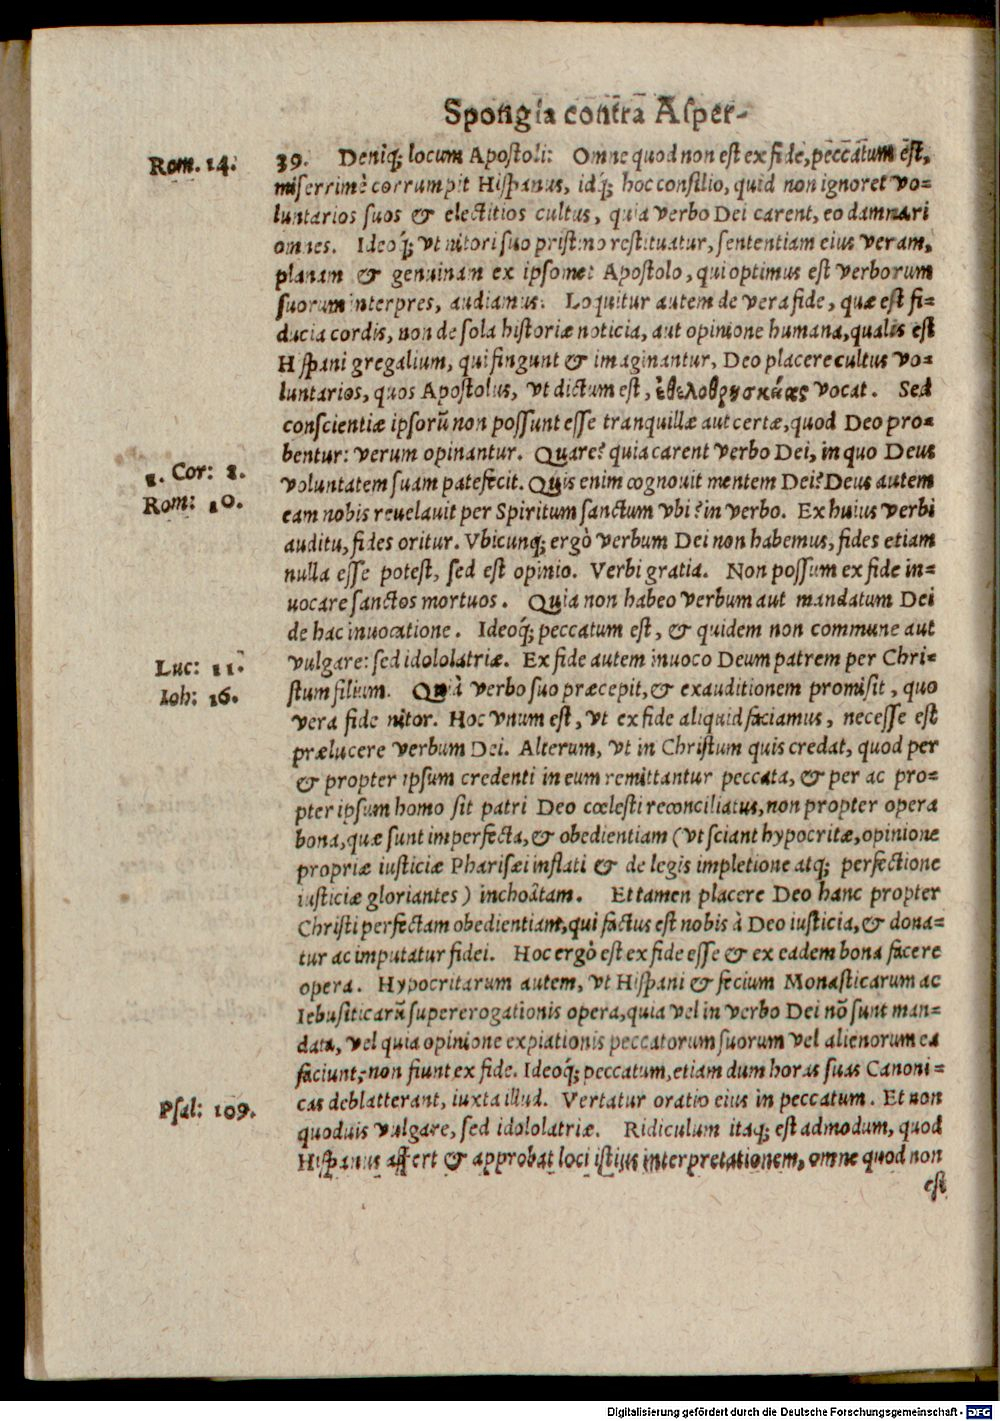 Spongia contra Asper-
Rom. 14. 39. Deniq́; locum Apostoli: Omne quod non est ex fide, peccatum est,
miserrimè corrumpit Hispanus, idq́; hoc consilio, quid non ignoret vo-
luntarios suos & electitios cultus, quia verbo Dei carent, eo damnari
omnes. Ideoq́; vt nitori suo pristino restituatur, sententiam eius veram,
planam & genuinam ex ipsomet Apostolo, qui optimus est verborum
suorum interpres, audiamus. Loquitur autem de vera fide, quæ est fi-
ducia cordis, non de sola historiæ noticia, aut opinione humana, qualis est
Hispani gregalium, qui fingunt & imaginantur, Deo placere cultus vo-
luntarios, quos Apostolus, vt dictum est, ἐθελοθρησκείας vocat. Sed
conscientiæ ipsorũ non possunt esse tranquillæ aut certæ, quod Deo pro-
bentur: verum opinantur. Quare? quia carent verbo Dei, in quo Deus
1. Cor: 2. voluntatem suam patefecit. Quis enim cognouit mentem Dei? Deus autem
Rom: 10. eam nobis reuelauit per Spiritum sanctum vbi? in verbo. Ex huius verbi
auditu, fides oritur. Vbicunq; ergò verbum Dei non habemus, fides etiam
nulla esse potest, sed est opinio. Verbi gratia. Non possum ex fide in-
uocare sanctos mortuos. Quia non habeo verbum aut mandatum Dei
de hac inuocatione. Ideoq́; peccatum est, & quidem non commune aut
Luc: 11. vulgare: sed idololatriæ. Ex fide autem inuoco Deum patrem per Chri-
Ioh: 16. stum filium. Quià verbo suo præcepit, & exauditionem promisit, quo
vera fide nitor. Hoc vnum est, vt ex fide aliquid faciamus, necesse est
prælucere verbum Dei. Alterum, vt in Christum quis credat, quod per
& propter ipsum credenti in eum remittantur peccata, & per ac pro-
pter ipsum homo sit patri Deo cœlesti reconciliatus, non propter opera
bona, quæ sunt imperfecta, & obedientiam (vt sciant hypocritæ, opinione
propriæ iusticiæ Pharisæi inflati & de legis impletione atq; perfectione
iusticiæ gloriantes) inchoatam. Et tamen placere Deo hanc propter
Christi perfectam obedientiam, qui factus est nobis à Deo iusticia, & dona-
tur ac imputatur fidei. Hoc ergò est ex fide esse & ex eadem bona facere
opera. Hypocritarum autem, vt Hispani & fecium Monasticarum ac
Iebusiticarũ supererogationis opera, quia vel in verbo Dei nõ sunt man-
data, vel quia opinione expiationis peccatorum suorum vel alienorum ea
faciunt, non fiunt ex fide. Ideoq́; peccatum, etiam dum horas suas Canoni-
Psal: 109. cas deblatterant, iuxta illud. Vertatur oratio eius in peccatum. Et non
quoduis vulgare, sed idololatriæ. Ridiculum itaq; est admodum, quod
Hispanus affert & approbat loci istius interpretationem, omne quod non
est
Digitalisierung gefördert durch die Deutsche Forschungsgemeinschaft - DFG